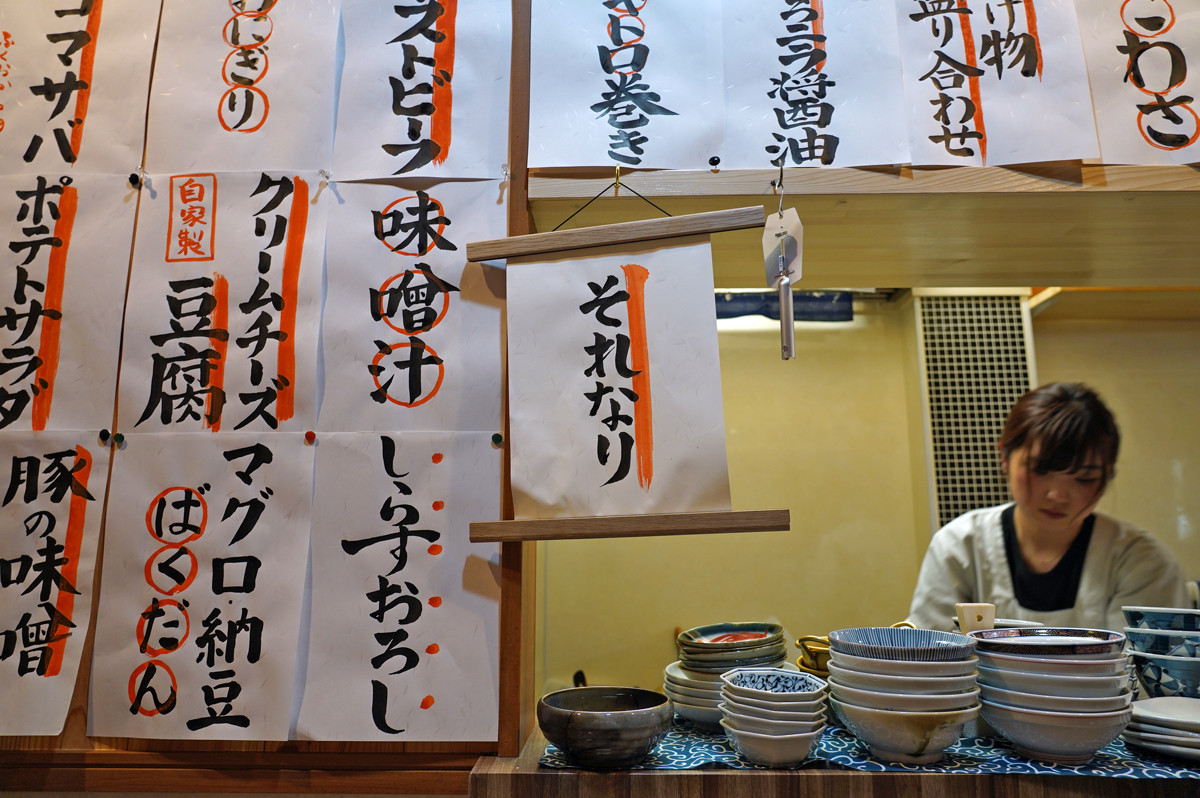 こわさ
け物
盛り合わせ
ろニラ醤油
トロ巻き
ストビーフ
にぎり
マサバ
それなり
味噌汁
クリームチーズ
自家製
豆腐
ポテトサラダ
しらすおろし
マグロ納豆
ばくだん
豚の味噌